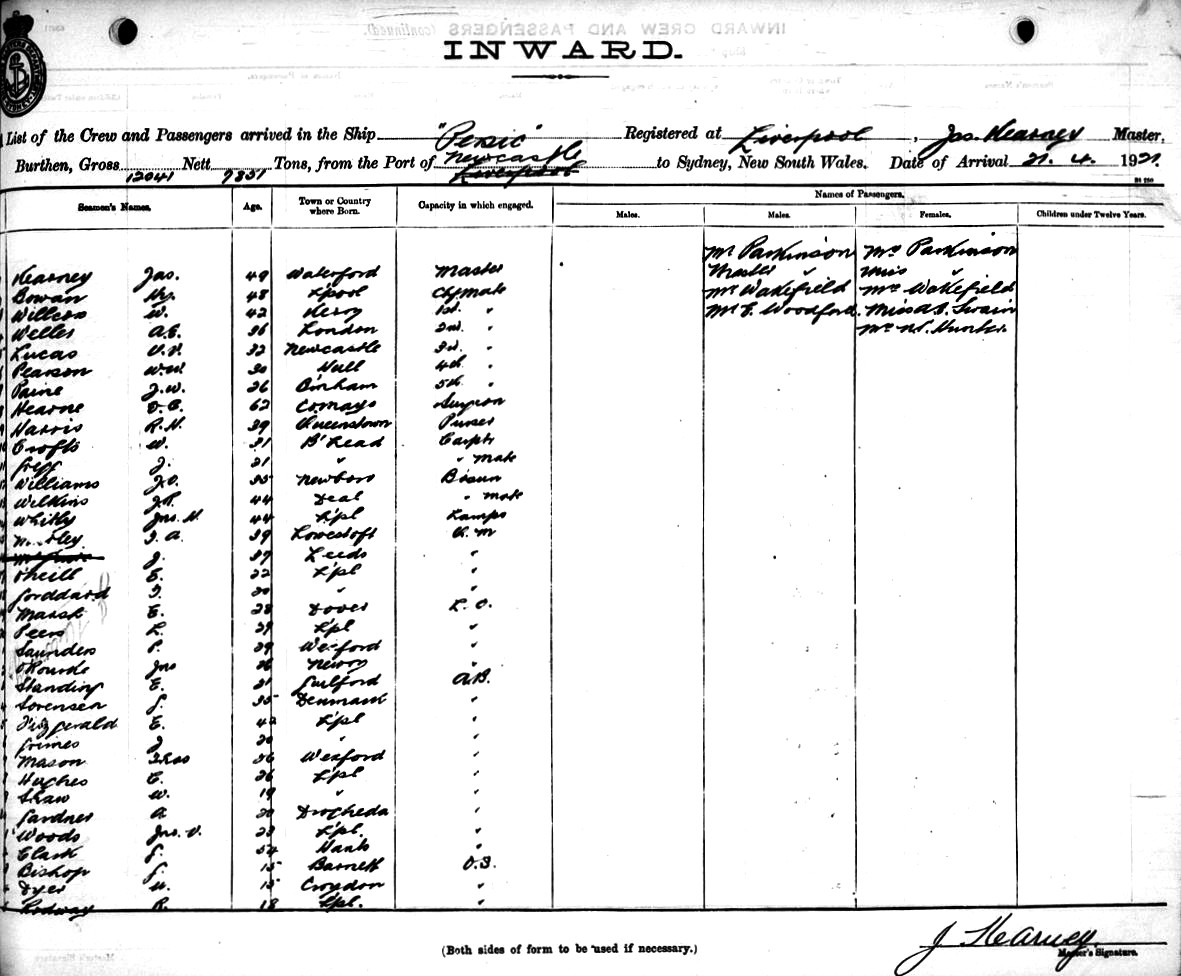 INWARD.
List of the Crew and Passengers arrived in the Ship "Persic" Registered at Liverpool, Jas. Kearney Master,
Burthen, Gross 12041 Nett 7851 Tons, from the Port of Newcastle Liverpool to Sydney, New South Wales. Date of Arrival 21. 4. 1921
Names of Passengers.
Seamen's Names. Age. Town or Country where Born. Capacity in which engaged. Males. Males. Females. Children under Twelve Years.
Mr Parkinson Mrs Parkinson
Master " Miss "
Mr Wakefield Mrs Wakefield
Mr E. Woodford. Miss A. E. Swain
Mrs Hunter
Kearney Jas. 49 Waterford Master
Bowan Hy. 48 L'pool Chf Mate
Willcox W. 42 Kerry 1st. "
Welles A.E. 36 London 2nd. "
Lucas V.V. 32 Newcastle 3rd. "
Pearson 30 Hull 4th. "
Paine J.W. 26 Binham 5th. "
Hearne D.C. 62 Surgeon
Harris R.H. 39 Queenstown Purser
Crofts W. 31 B'Head Carptr
J. 21 " " Mate
Williams J.O. 35 Newboro Bosun
Wilkins J.R. 44 Deal " Mate
Whitby Jno. H. 44 L'pl Lamps
39 Lowestoft Q.M
J. 37 Leeds "
O'Neill E. 22 L'pl "
Gorddard 20 " "
Marsh E. 28 Dover L.O.
Peers L. 29 L'pl "
Saunders P. 29 Wexford "
O'Rourke Jno 26 Newry "
Standing E. 21 Guilford A.B.
Sorensen 35 Denmark "
Fitzgerald E. 42 L'pl "
Grimes J 20 " "
Mason Thos 56 Wexford "
Hughes E. 26 L'pl "
Shaw W. 19 " "
Gardner A 20 Drogheda "
Woods Jno. V. 23 L'pl. "
Clark 54 Hants "
Bishop 15 Barnett O.S.
Dyer 15 Croydon "
Rodway R. 18 Lpl. "
J Kearney.
(Both sides of form to be used if necessary.) Master's Signature.